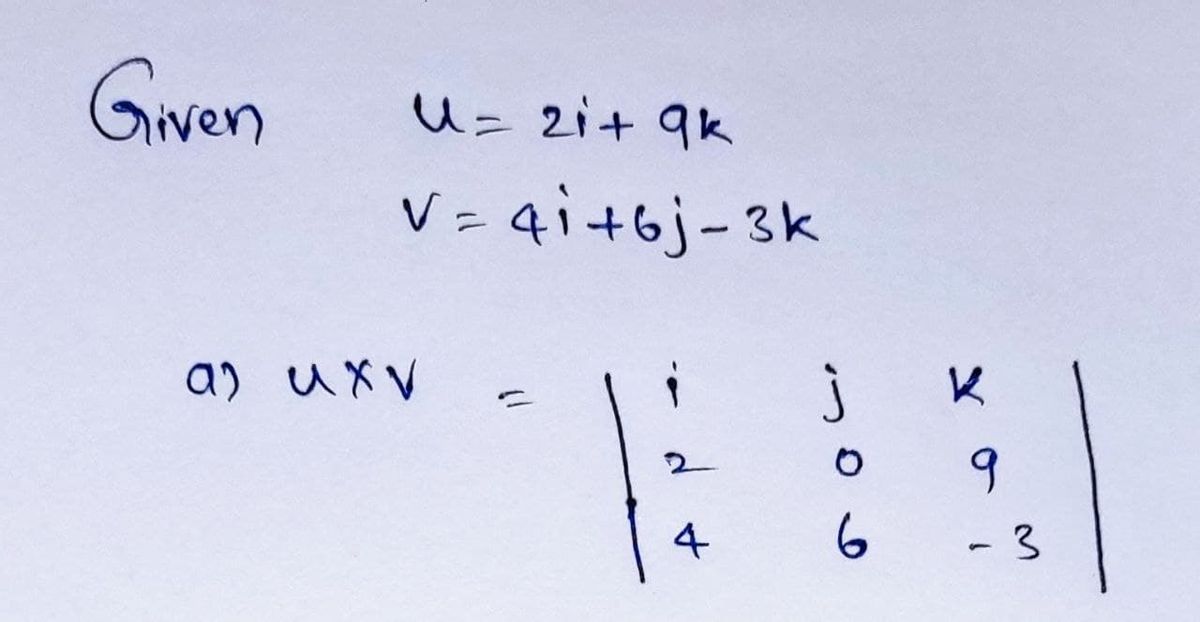 Given u = 2i + 9k
v = 4i + 6j - 3k
a) u x v = | i j k |
| 2 0 9 |
| 4 6 -3 |